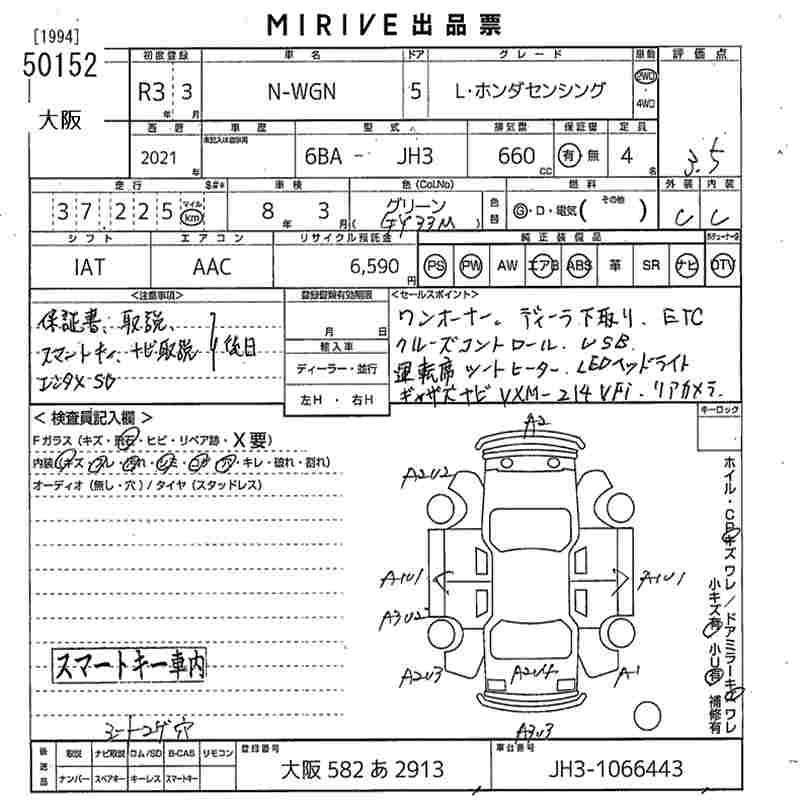 MIRIVE 出品票
[1994]
50152
大阪
初度登録 車名 ドア グレード 駆動 評価点
R3 年 3 月 N-WGN 5 L・ホンダセンシング 2WD ・ 4WD
西暦 車歴 型式 排気量 保証書 定員
2021 年 未記入は自家用 6BA - JH3 660 CC 有・無 4 名 3.5
走行 $#* 車検 色(Col.No) 燃料 外装 内装
37,225 マイル km 8 年 3 月 グリーン (GY33M) 色替 G・D・電気( その他 ) C C
シフト エアコン リサイクル預託金 純正装備品
IAT AAC 6,590 円 PS PW AW エアB ABS 革 SR ナビ DTV
<注意事項> 登録登録有効期限 <セールスポイント>
保証書、取説、
スマートキー、ナビ取説 後日
月 日
輸入車
ディーラー・並行
左H ・ 右H
ワンオーナー。ディーラ下取り、ETC
クルーズコントロール、USB
運転席シートヒーター、LEDヘッドライト
ギャザズナビ VXM-214VFi、リアカメラ
キーロック
< 検査員記入欄 >
Fガラス(キズ・飛石・ヒビ・リペア跡・X要)
内装(キズ・・・・・・キレ・破れ・割れ)
オーディオ(無し・穴)/タイヤ(スタッドレス)
A2
A2U2
A1U1 A1U1
A3U2
A2U3 A2U4 A1
A3U3
ホイル・CPキズワレ/ドアミラーキズワレ
小キズ有 小U有 補修有
スマートキー車内
コーナーコゲ穴
後送品 取説 ナビ取説 ロム/SD B-CAS リモコン
ナンバー スペアキー キーレス スマートキー
登録番号
大阪 582 あ 2913
車台番号
JH3-1066443